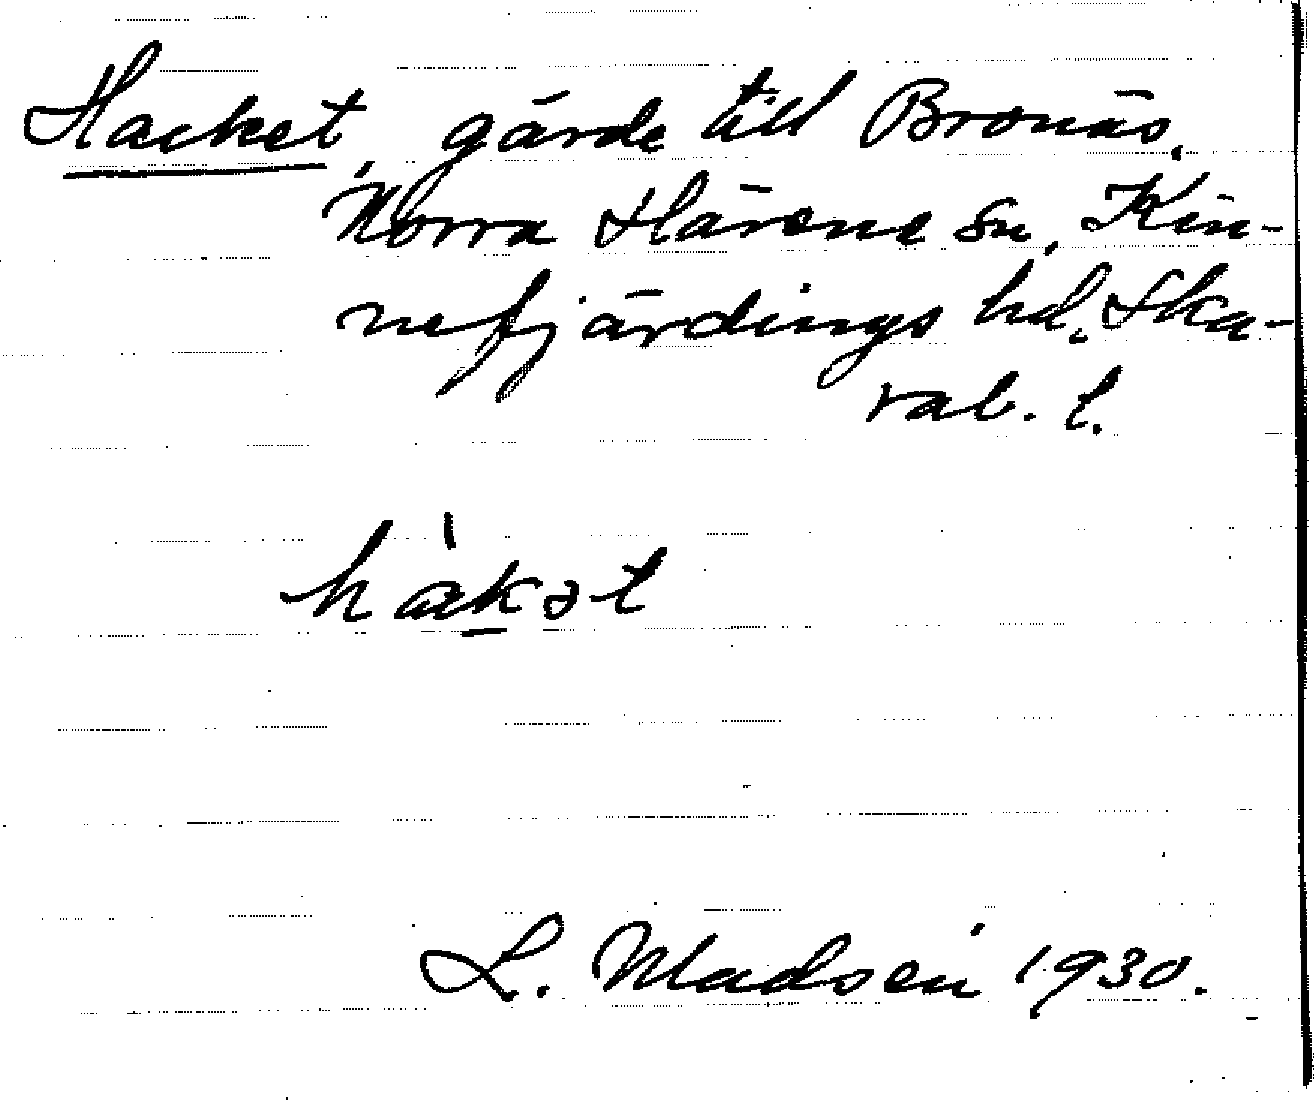 Hacket, gärde till Bronäs,
Norra Härene sn, Kin-
nefjärdings hd. Ska-
rab. l.
hàkət
L. Madsén 1930.